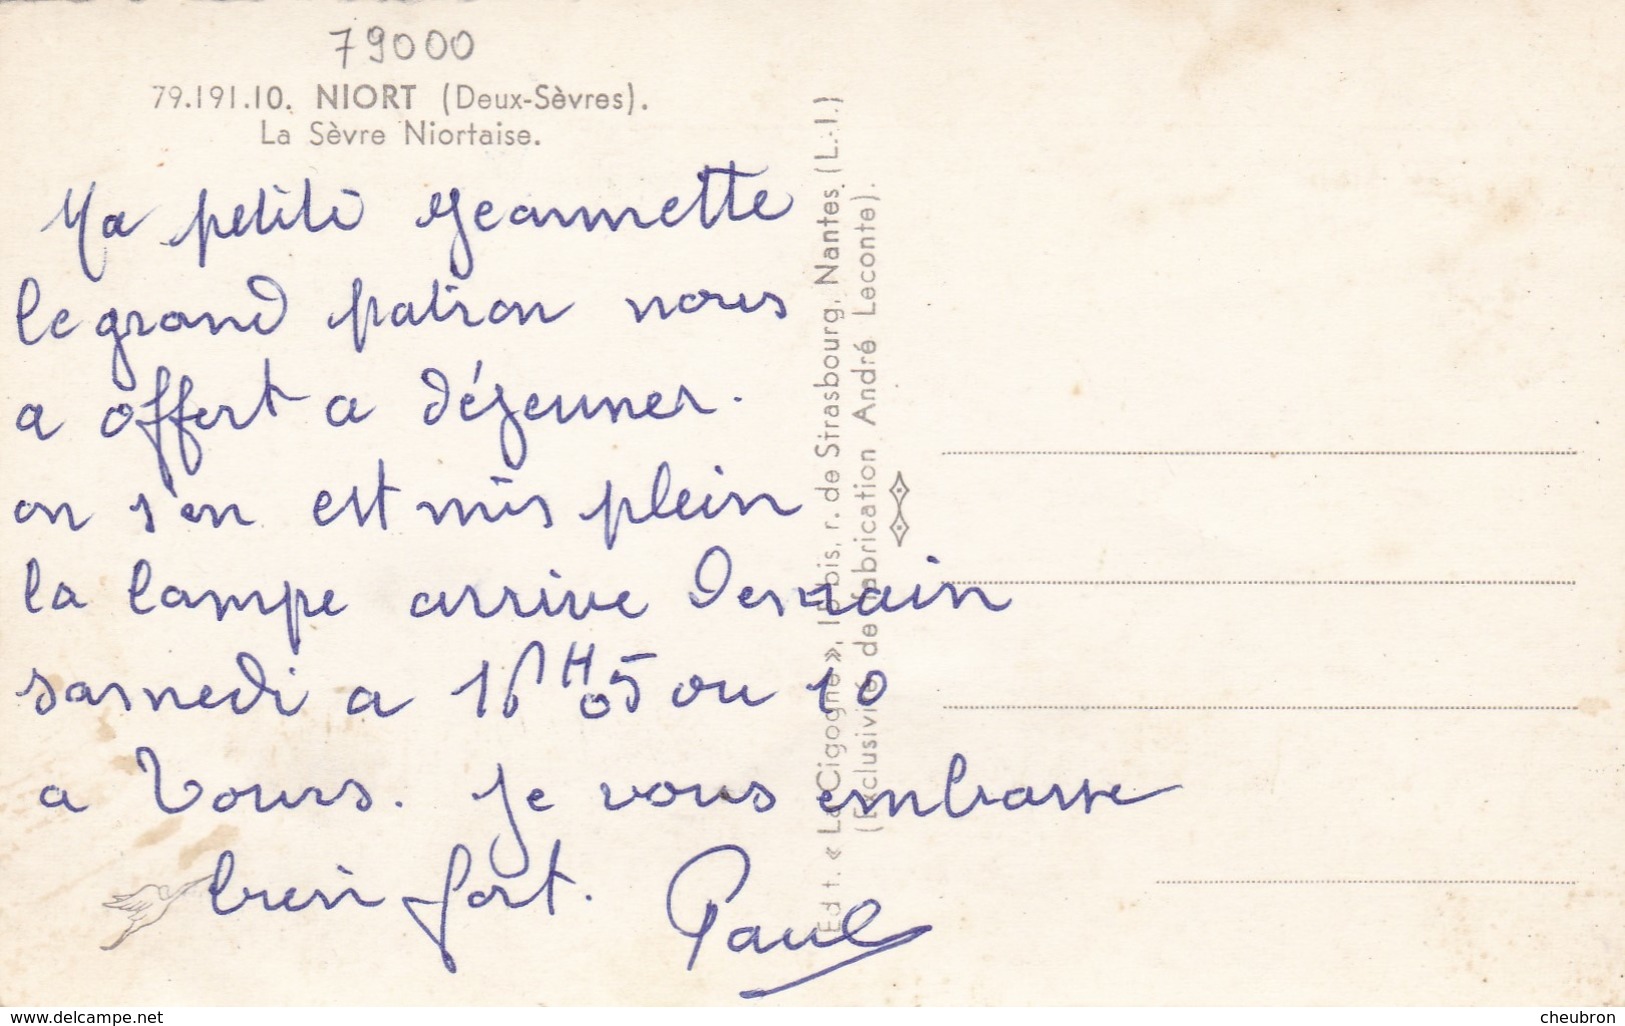 79000
79.191.10. NIORT (Deux-Sèvres).
La Sèvre Niortaise.
Ma petite Jeannette
le grand patron nous
a offert a déjeuner.
on s'en est mis plein
la lampe arrive demain
samedi a 16H05 ou 10
a Tours. Je vous embrasse
bien fort. Paul
Edt. « La Cigogne », 16 bis, r. de Strasbourg, Nantes (L.-I.)
(Exclusivité de fabrication André Leconte).
www.delcampe.net
cheubron